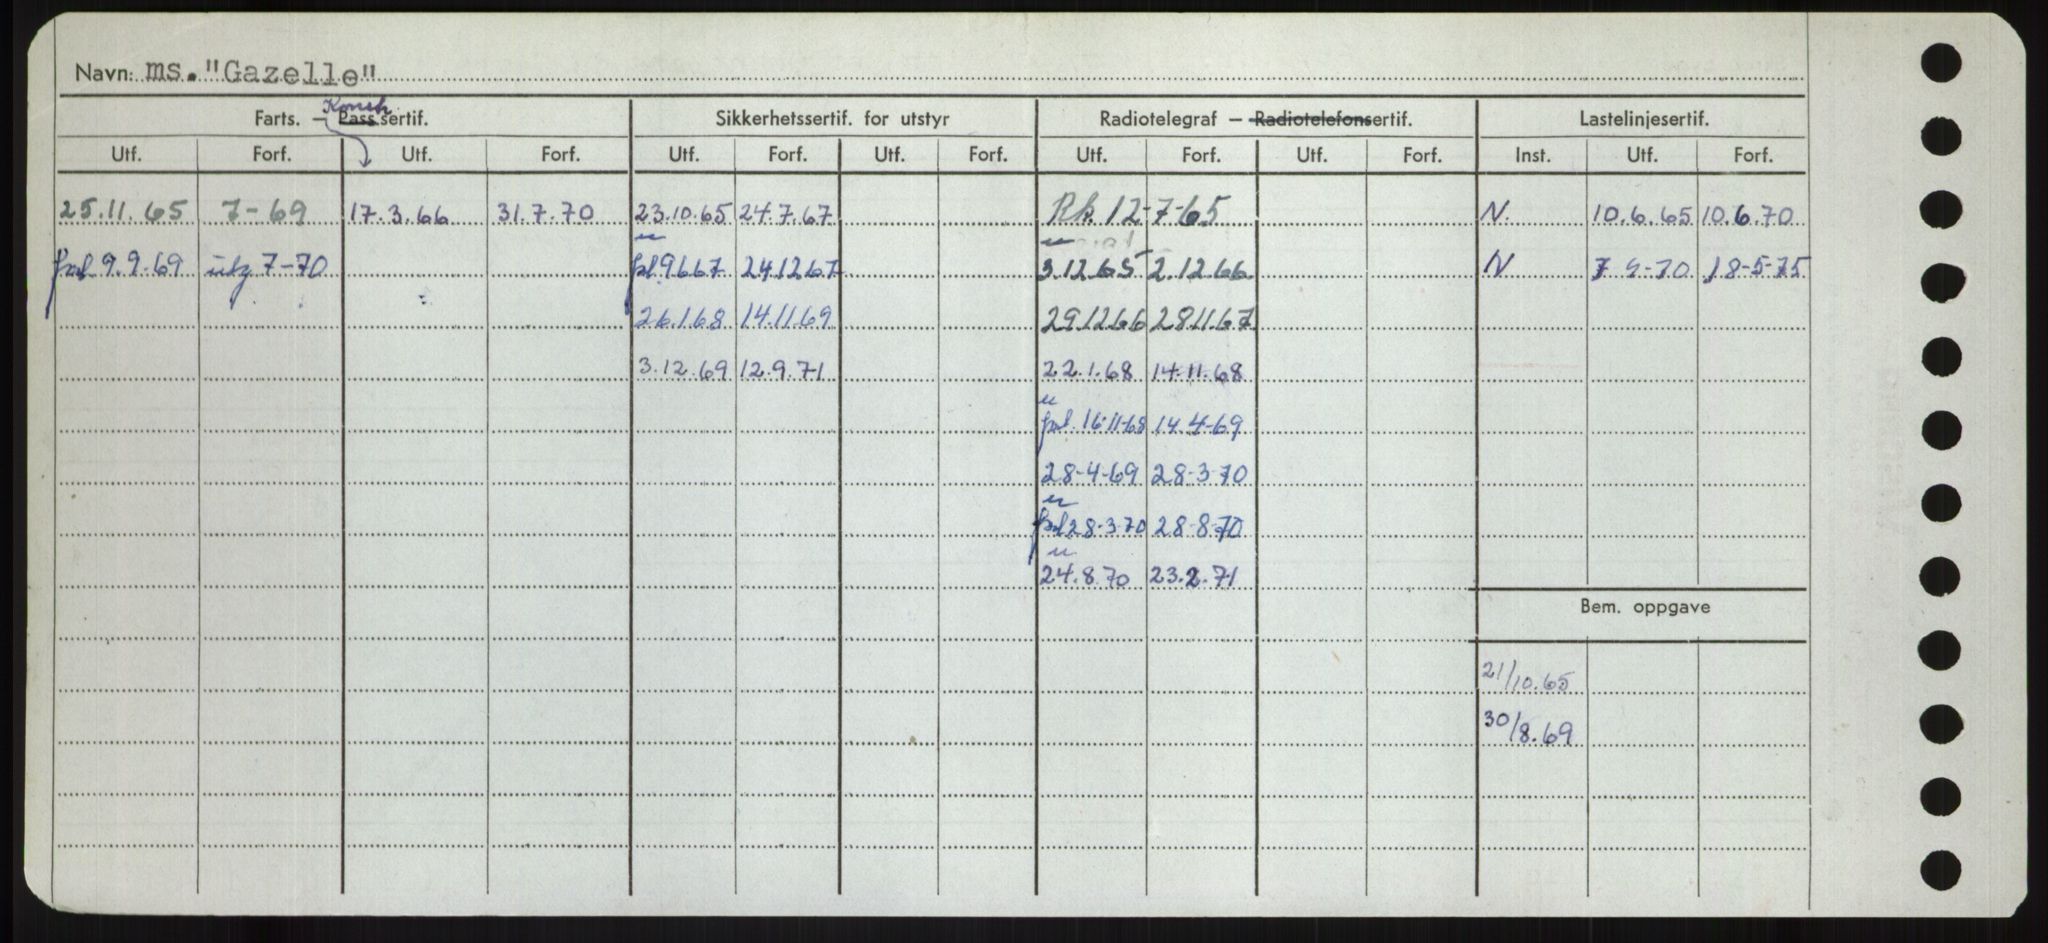 Navn: ms. "Gazelle"
Farts. – Konstr. Pass sertif. Sikkerhetssertif. for utstyr Radiotelegraf – Radiotelefonsertif. Lastelinjesertif.
Utf. Forf. Utf. Forf. Utf. Forf. Utf. Forf. Utf. Forf. Utf. Forf. Inst. Utf. Forf.
25.11.65 7-69 17.3.66 31.7.70 23.10.65 24.7.67 12-7-65 N. 10.6.65 10.6.70
9.9.69 utg 7-70 9667 241267 3.12.65 2.12.66 N 70 18-5-75
26.1.68 14.11.69 29.12.66 28.11.67
3.12.69 12.9.71 22.1.68 14.11.68
16-11-68 14.4-69
28-4-69 28-3-70
28-3-70 28-8-70
24.8.70 23.2.71
Bem. oppgave
21/10.65
30/8.69